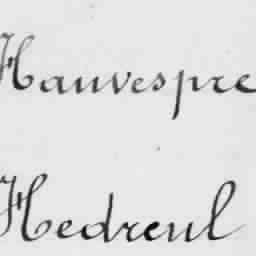 Hauvespre
Hedreul